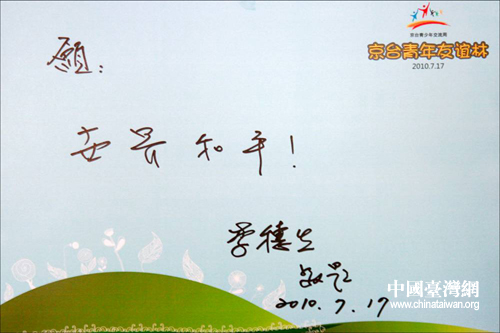 京台青少年交流周
京台青年友谊林
2010.7.17
愿：
世界和平！
敬题
2010.7.17
中國臺灣網
www.chinataiwan.org